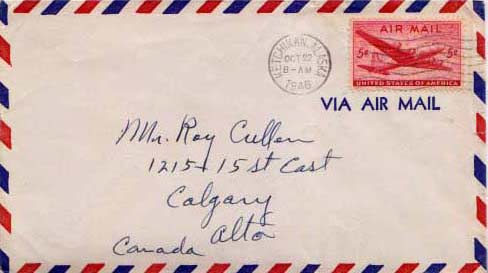 KETCHIKAN, ALASKA
OCT 22
8-AM
1946
AIR MAIL
5¢ 5¢
UNITED STATES OF AMERICA
VIA AIR MAIL
Mr. Roy Cullen
1215 - 15 st East
Calgary
Alta
Canada